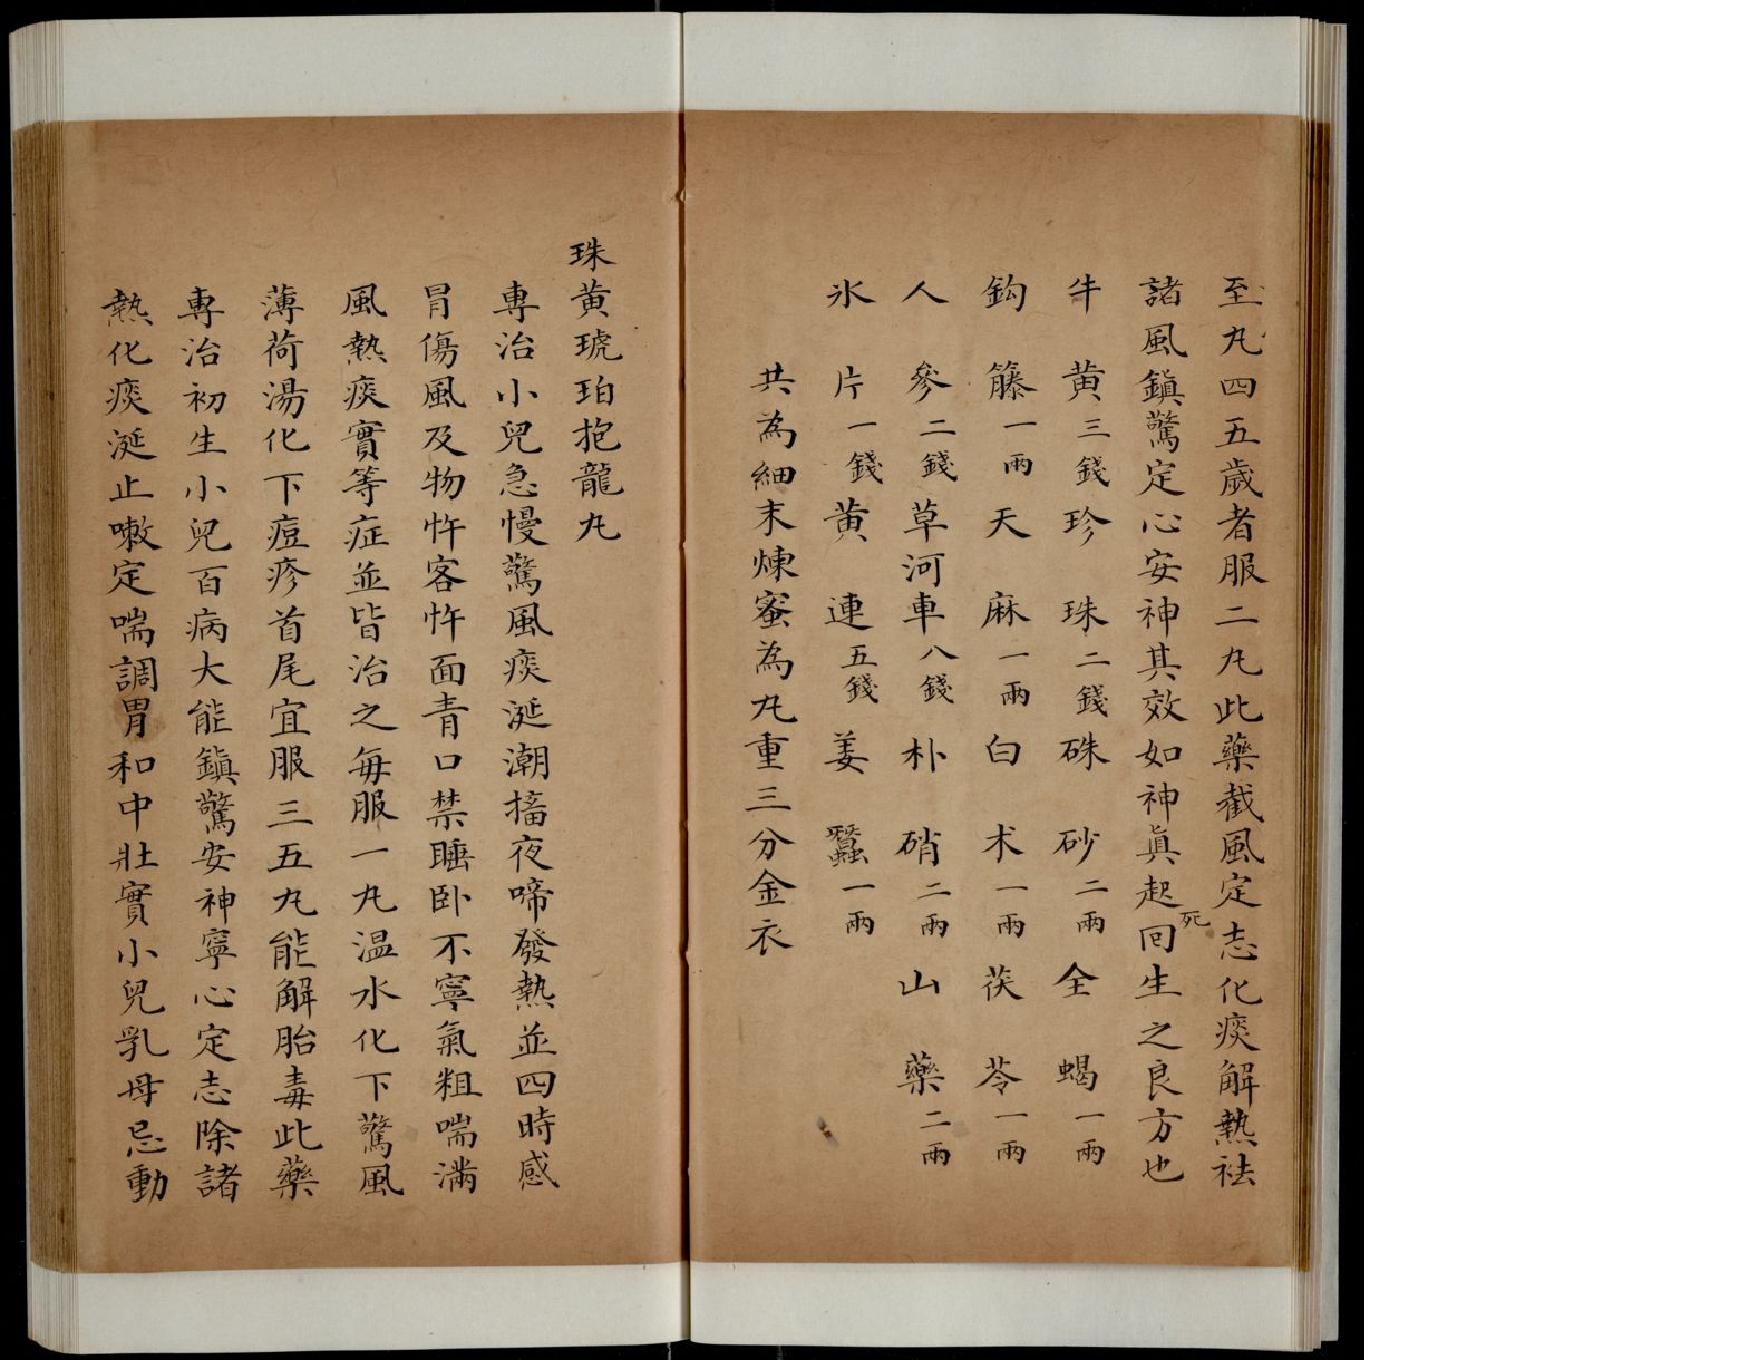 至九四五歲者服二九此藥截風定志化痰解熱祛
諸風鎮驚定心安神其效如神眞起死回生之良方也
牛黄三錢珍珠二錢硃砂二兩全蝎一兩
鈎籐一兩天麻一兩白朮一兩茯苓一兩
人參二錢草河車八錢朴硝二兩山藥二兩
氷片一錢黄連五錢姜蠶一兩
共為細末煉蜜為丸重三分金衣
珠黄琥珀抱龍丸
專治小兒急慢驚風痰涎潮搐夜啼發熱並四時感
冒傷風及物忤客忤面青口禁睡卧不寧氣粗喘滿
風熱痰實等症並皆治之每服一丸温水化下驚風
薄荷湯化下痘疹首尾宜服三五丸能解胎毒此藥
專治初生小兒百病大能鎮驚安神寧心定志除諸
熱化痰涎止嗽定喘調胃和中壯實小兒乳母忌動